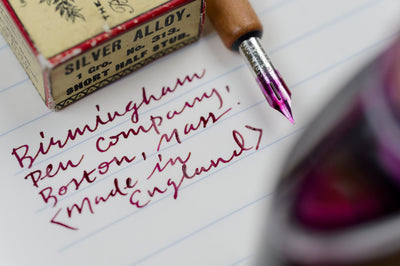 SILVER ALLOY.
1 Gro. No. 313.
SHORT HALF STUB.
Birmingham
Pen Company,
Boston, Mass.
<Made in
England>